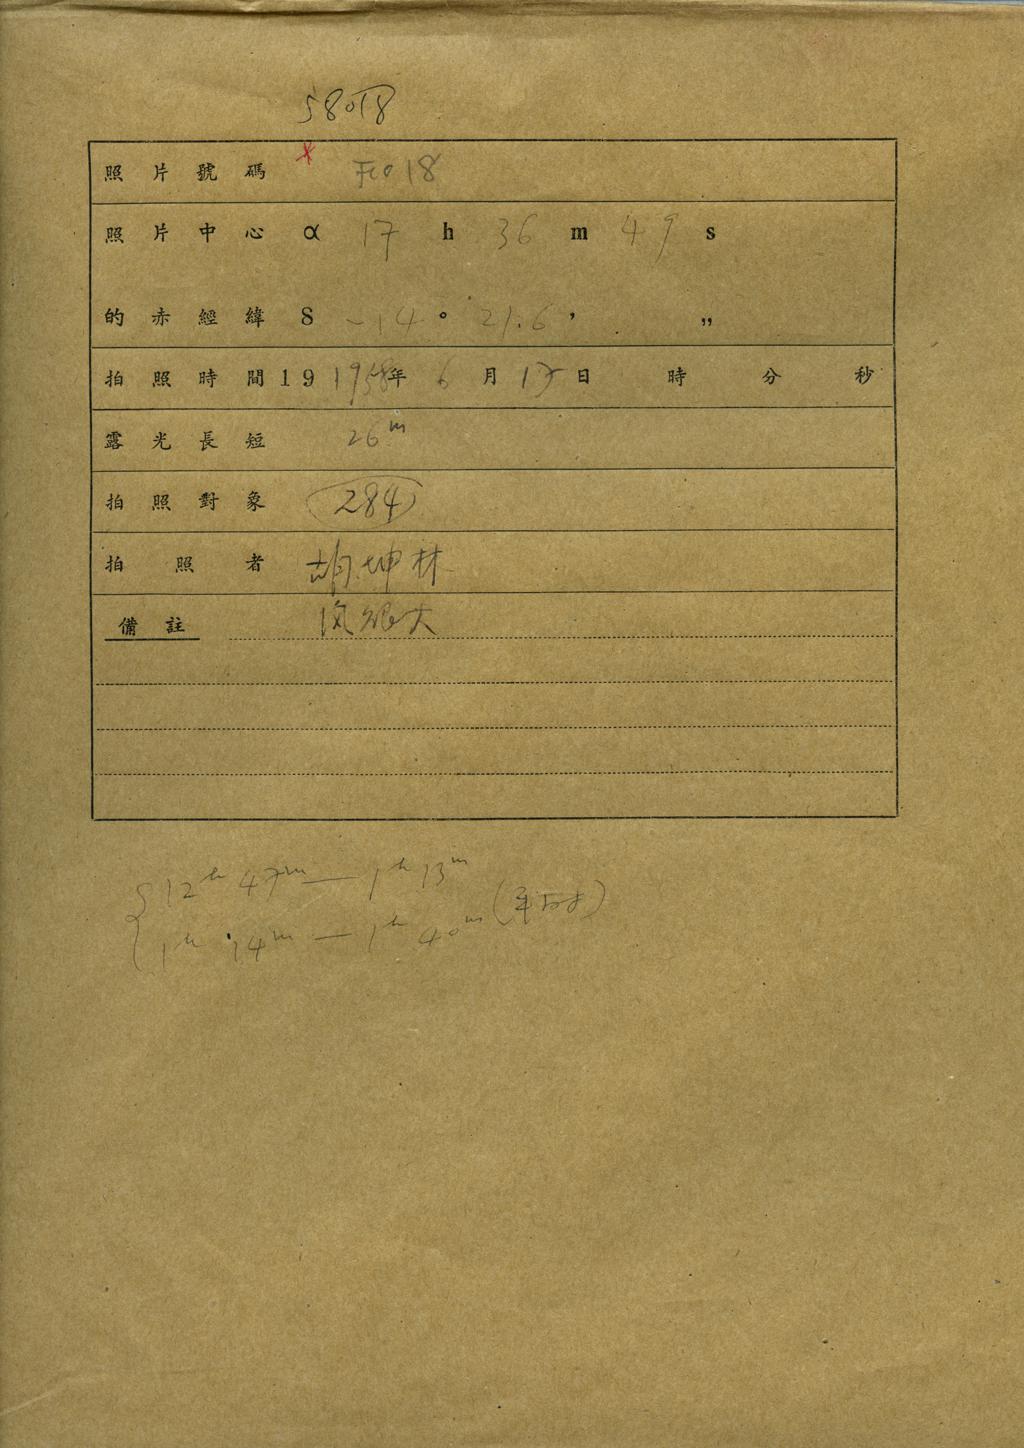 58018
照片號碼 18
照片中心 α 17 h 36 m 49 s
的赤經緯 δ -14° 21.6' "
拍照時間19 1958年 6月17日 時 分 秒
露光長短 26m
拍照對象 284
拍照者 胡坤林
備註 风很大
12h 47m — 1h 13m
1h 14m — 1h 40m